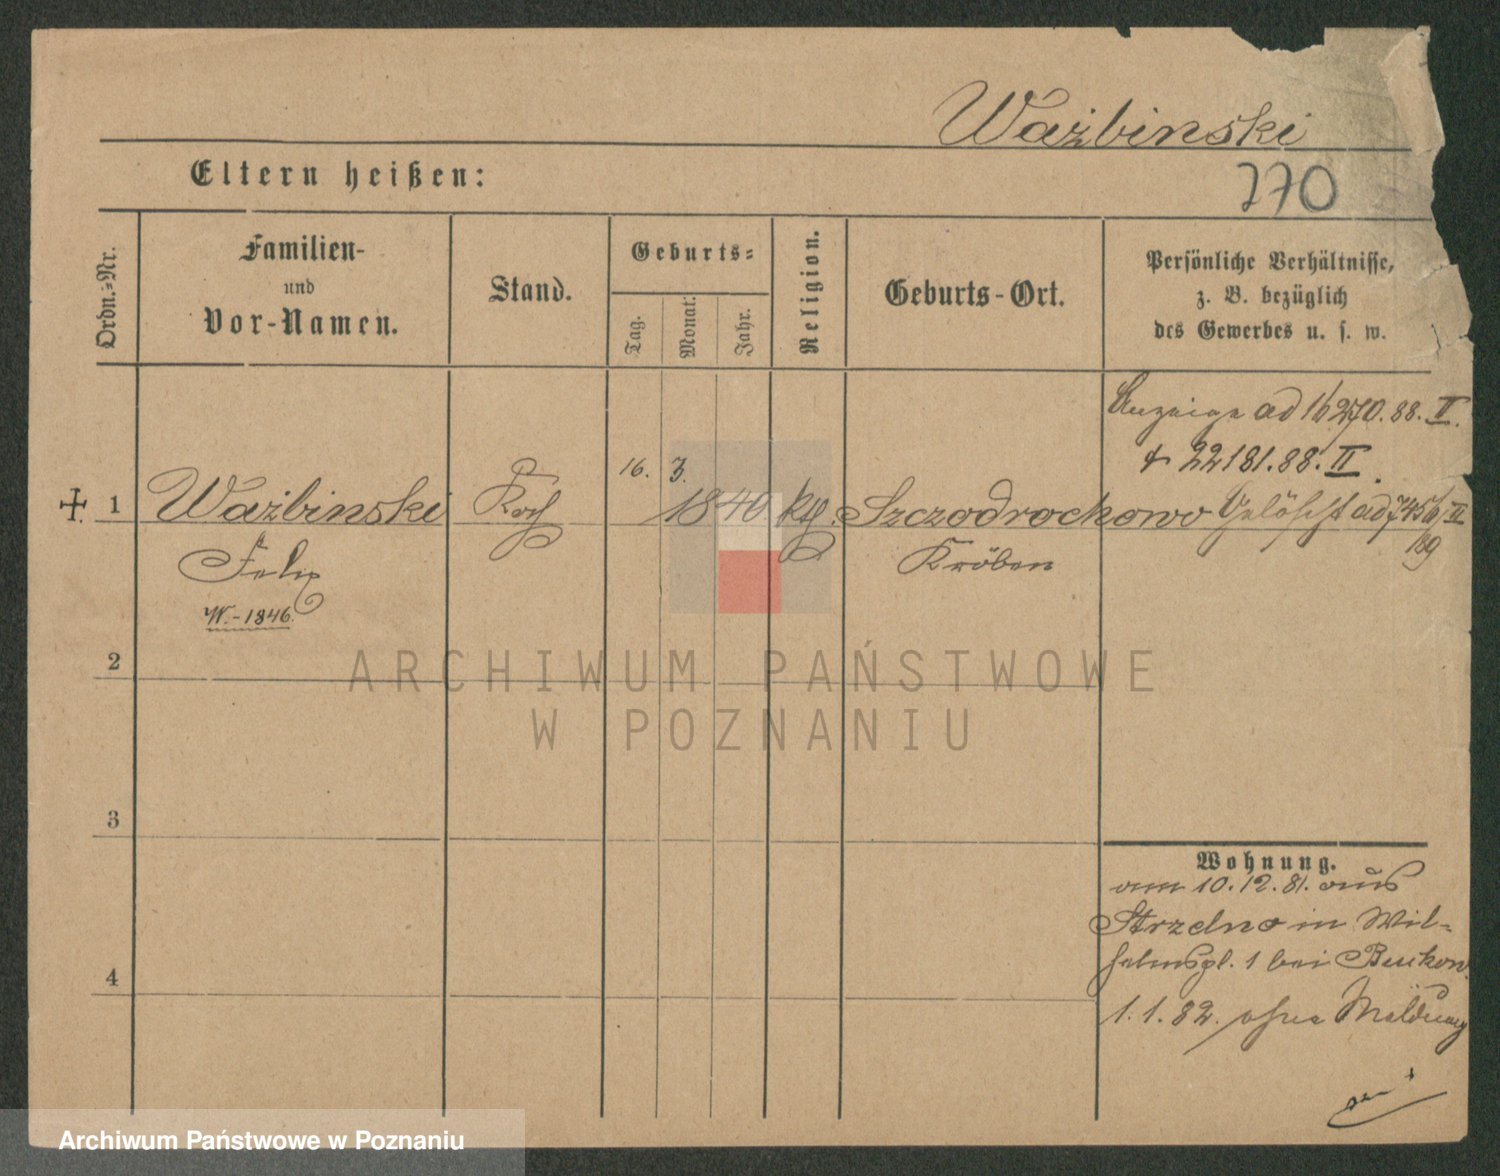 Ważbinski
Eltern heißen:
270
Ordn.=Nr.
Familien-
und
Vor-Namen.
Stand.
Geburts=
Tag.
Monat.
Jahr.
Religion.
Geburts-Ort.
Persönliche Verhältnisse,
z. B. bezüglich
des Gewerbes u. s. w.
Anzeige ad 16270.88. II.
22181.88. II.
1 Ważbinski Koch 16. 3. 1840 kth. Szczodrochowo Gelöscht ad 7456/II
89
Felix Kröben
W.-1846.
2
3
4
Wohnung.
am 10.12.81. aus
Strzelno in Wil-
helmspl. 1 bei
1.1.82. ohne Meldung
ARCHIWUM PAŃSTWOWE
W POZNANIU
Archiwum Państwowe w Poznaniu